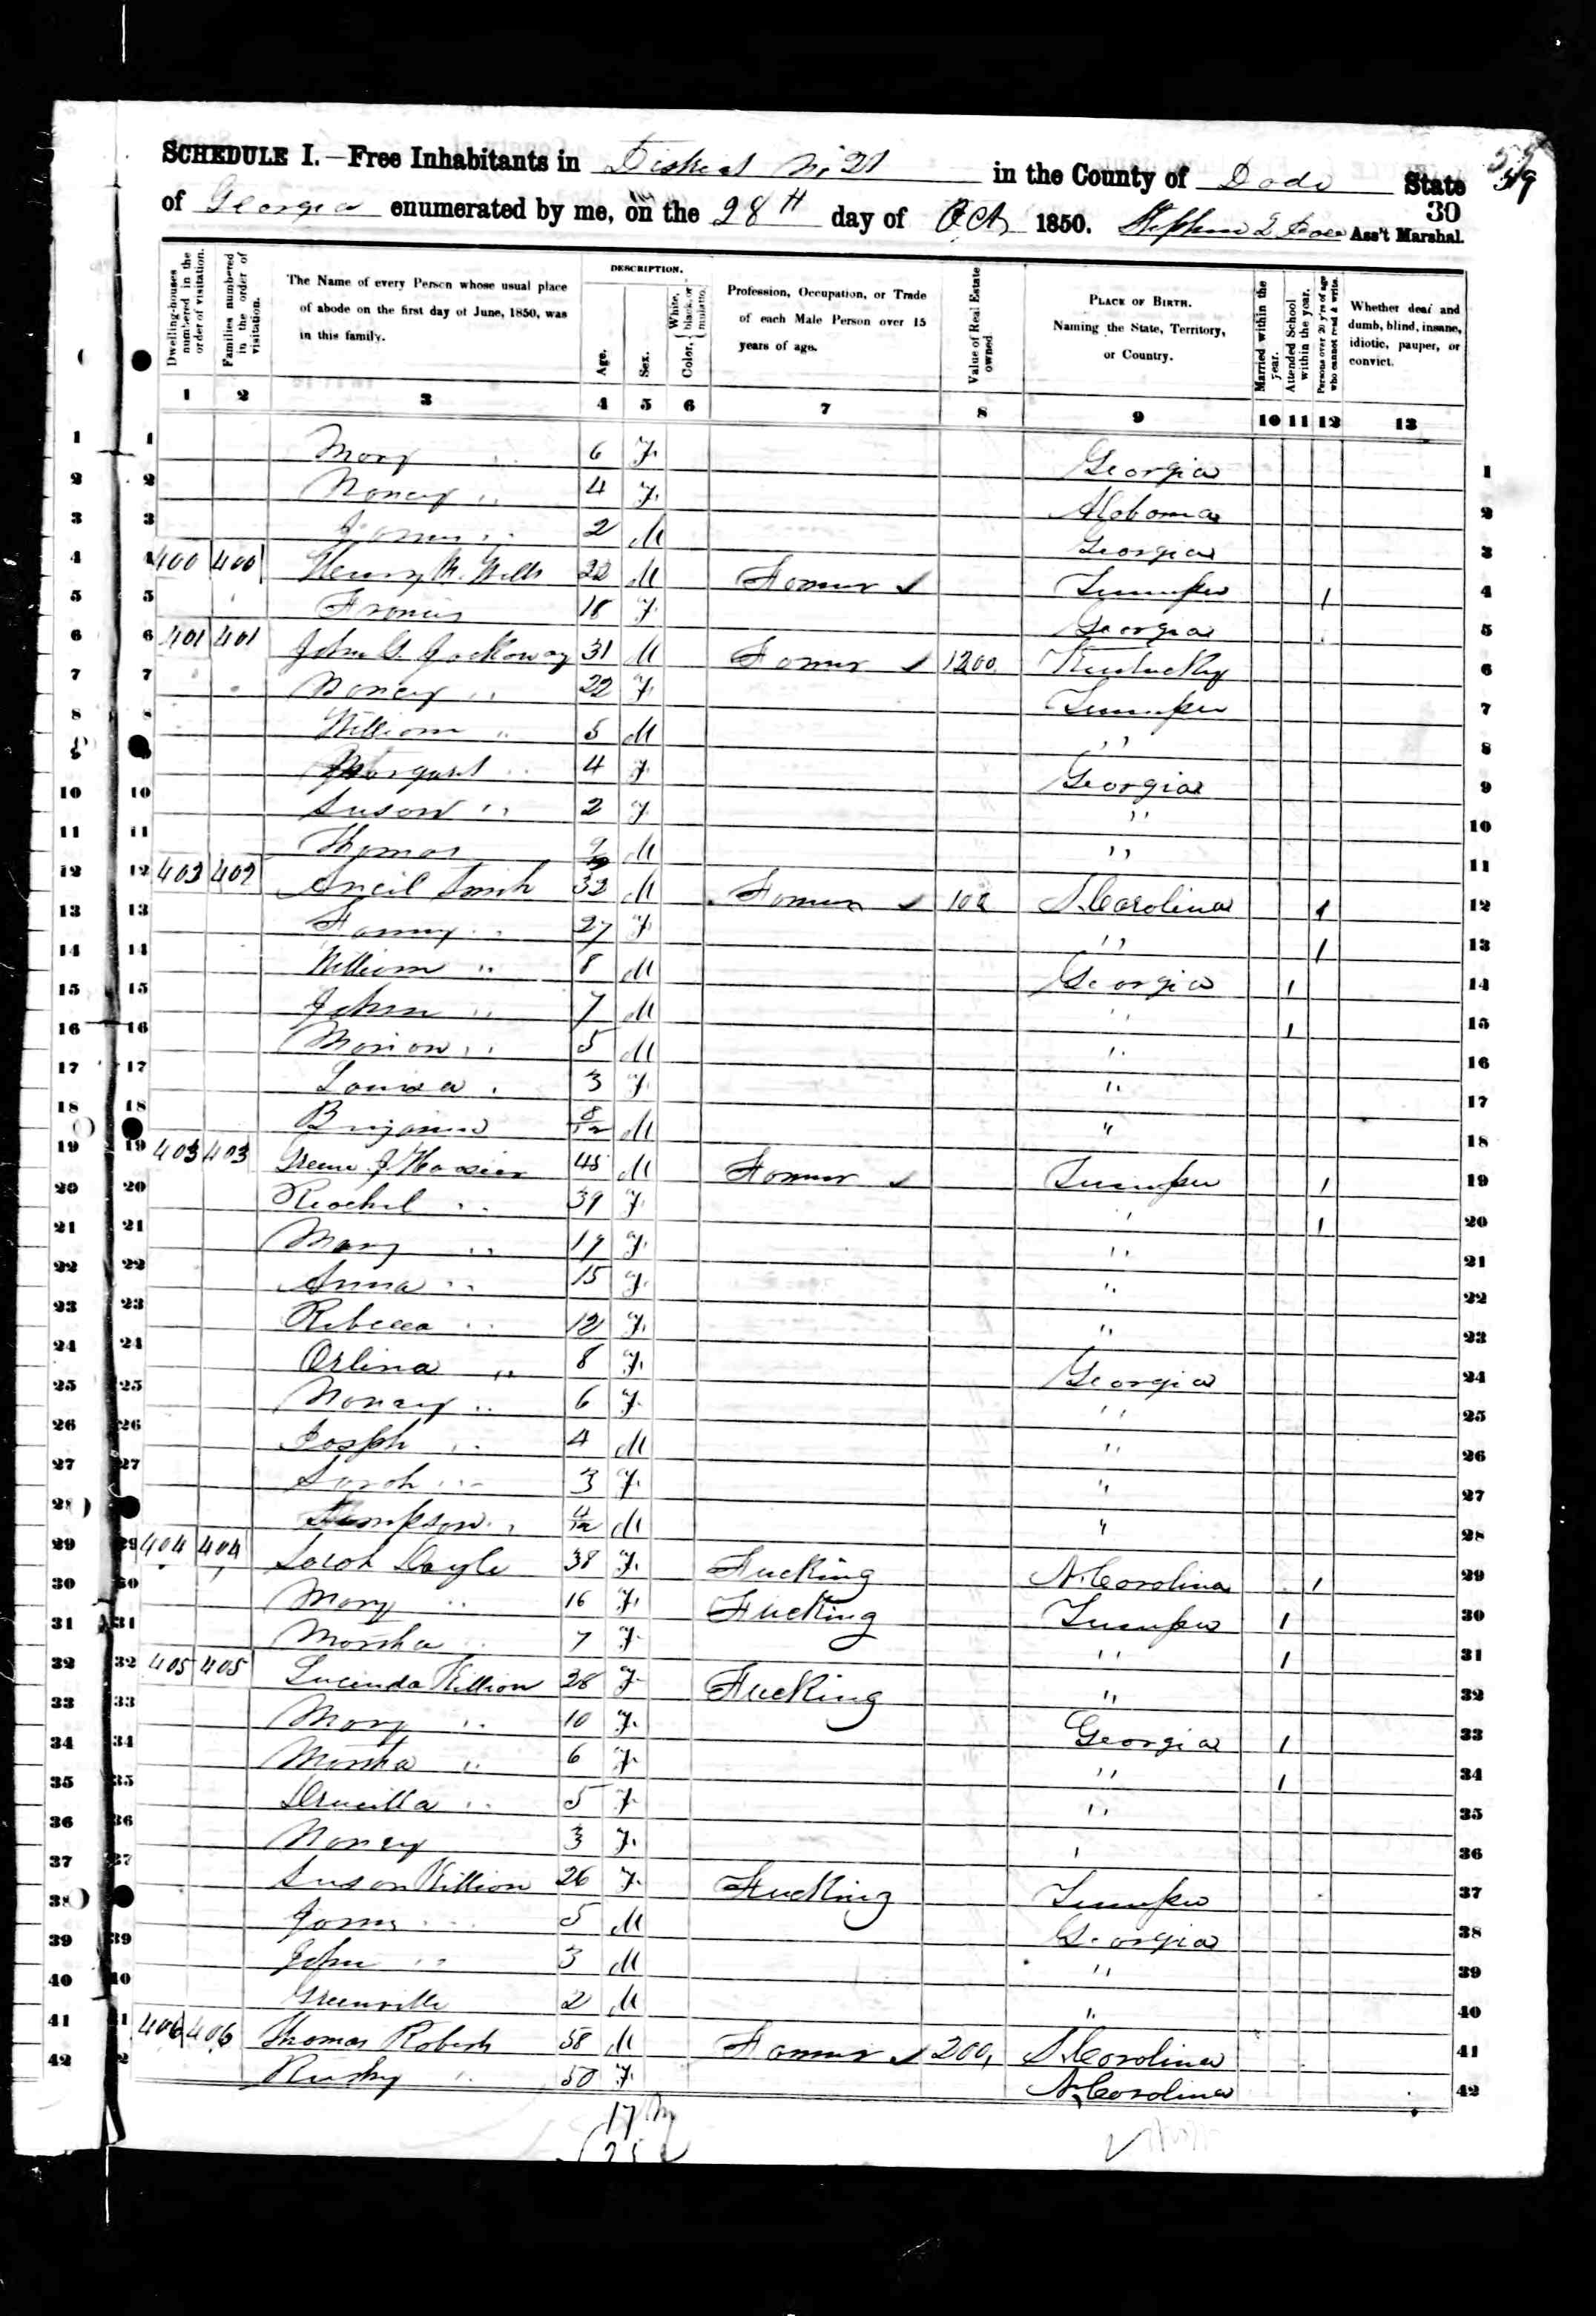 SCHEDULE I.—Free Inhabitants in District No 21 in the County of Dade State
of Georgia enumerated by me, on the 28th day of Oct 1850. Ass't Marshal.
30
DESCRIPTION.
Dwelling-houses numbered in the order of visitation.
Families numbered in the order of visitation.
The Name of every Person whose usual place of abode on the first day of June, 1850, was in this family.
Age.
Sex.
Color, White, black, or mulatto.
Profession, Occupation, or Trade of each Male Person over 15 years of age.
Value of Real Estate owned.
PLACE OF BIRTH. Naming the State, Territory, or Country.
Married within the year.
Attended School within the year.
Persons over 20 y'rs of age who cannot read & write.
Whether deaf and dumb, blind, insane, idiotic, pauper, or convict.
1 2 3 4 5 6 7 8 9 10 11 12 13
1 Mary " 6 F. Georgia 1
2 Nancy " 4 F. Alabama 2
3 James " 2 M Georgia 3
4 400 400 Henry M. Wells 22 M Farmer Tennessee 1 4
5 Francis 18 F. Georgia 5
6 401 401 John G. Jackoway 31 M Farmer 1200 Kentucky 6
7 Nancy " 22 F. Tennessee 7
8 William " 5 M " 8
9 Margaret " 4 F. Georgia 9
10 Susan " 2 F. " 10
11 Thomas M " 11
12 403 402 Ancil Smith 32 M Farmer 100 S. Carolina 1 12
13 Fanny " 27 F. " 1 13
14 William " 8 M Georgia 1 14
15 John " 7 M " 1 15
16 Marion " 5 M " 16
17 Louisa " 3 F. " 17
18 Benjamin 8/12 M " 18
19 403 403 Green J. Hoosier 45 M Farmer Tennessee 1 19
20 Rachel " 39 F. " 1 20
21 Mary " 19 F. " 21
22 Anna " 15 F. " 22
23 Rebecca " 12 F. " 23
24 Orlina " 8 F. Georgia 24
25 Nancy " 6 F. " 25
26 Joseph " 4 M " 26
27 Sarah " 3 F. " 27
28 Thompson " 4/12 M " 28
29 404 404 Sarah Dayle 38 F. Fucking N. Carolina 1 29
30 Mary " 16 F. Fucking Tennessee 1 30
31 Martha " 7 F. " 1 31
32 405 405 Lucinda Killion 28 F. Fucking " 32
33 Mary " 10 F. Georgia 1 33
34 Martha " 6 F. " 1 34
35 Drucilla " 5 F. " 35
36 Nancy 3 F. " 36
37 Susan Killion 26 F. Fucking Tennessee 37
38 James " 5 M Georgia 38
39 John " 3 M " 39
40 Greenville 2 M " 40
41 406 406 Thomas Roberts 58 M Farmer 200 S. Carolina 41
42 50 F. N. Carolina 42
17 M
25